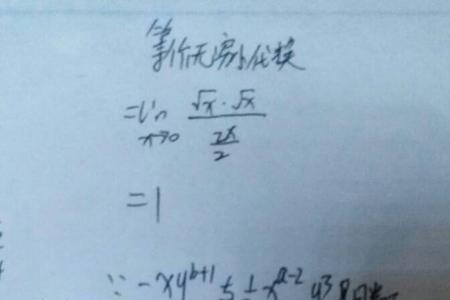 等价无穷小代换
=lim x→0 √x·√x / (2x/2)
=1
∵ -xy^(b+1) 与 1/2 x^(a-2) y^3 是同类